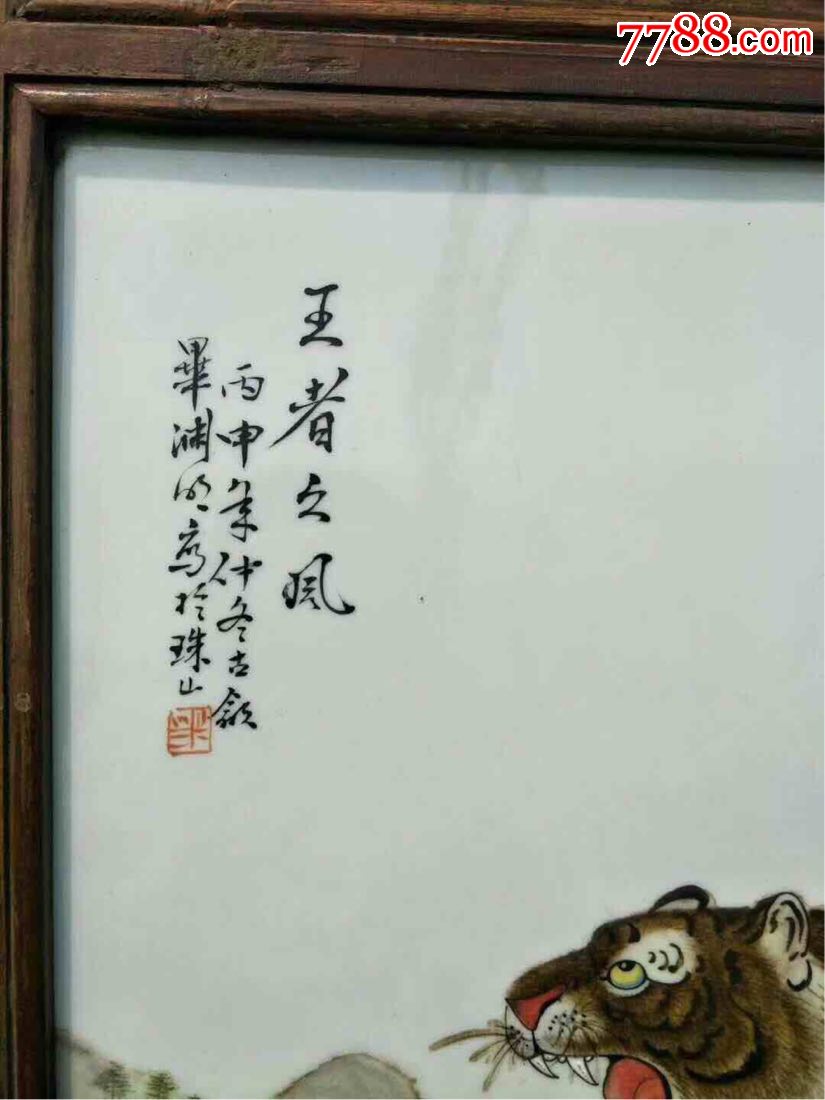 7788.com
王者之風
丙申年仲冬古歙
畢淵明寫於珠山